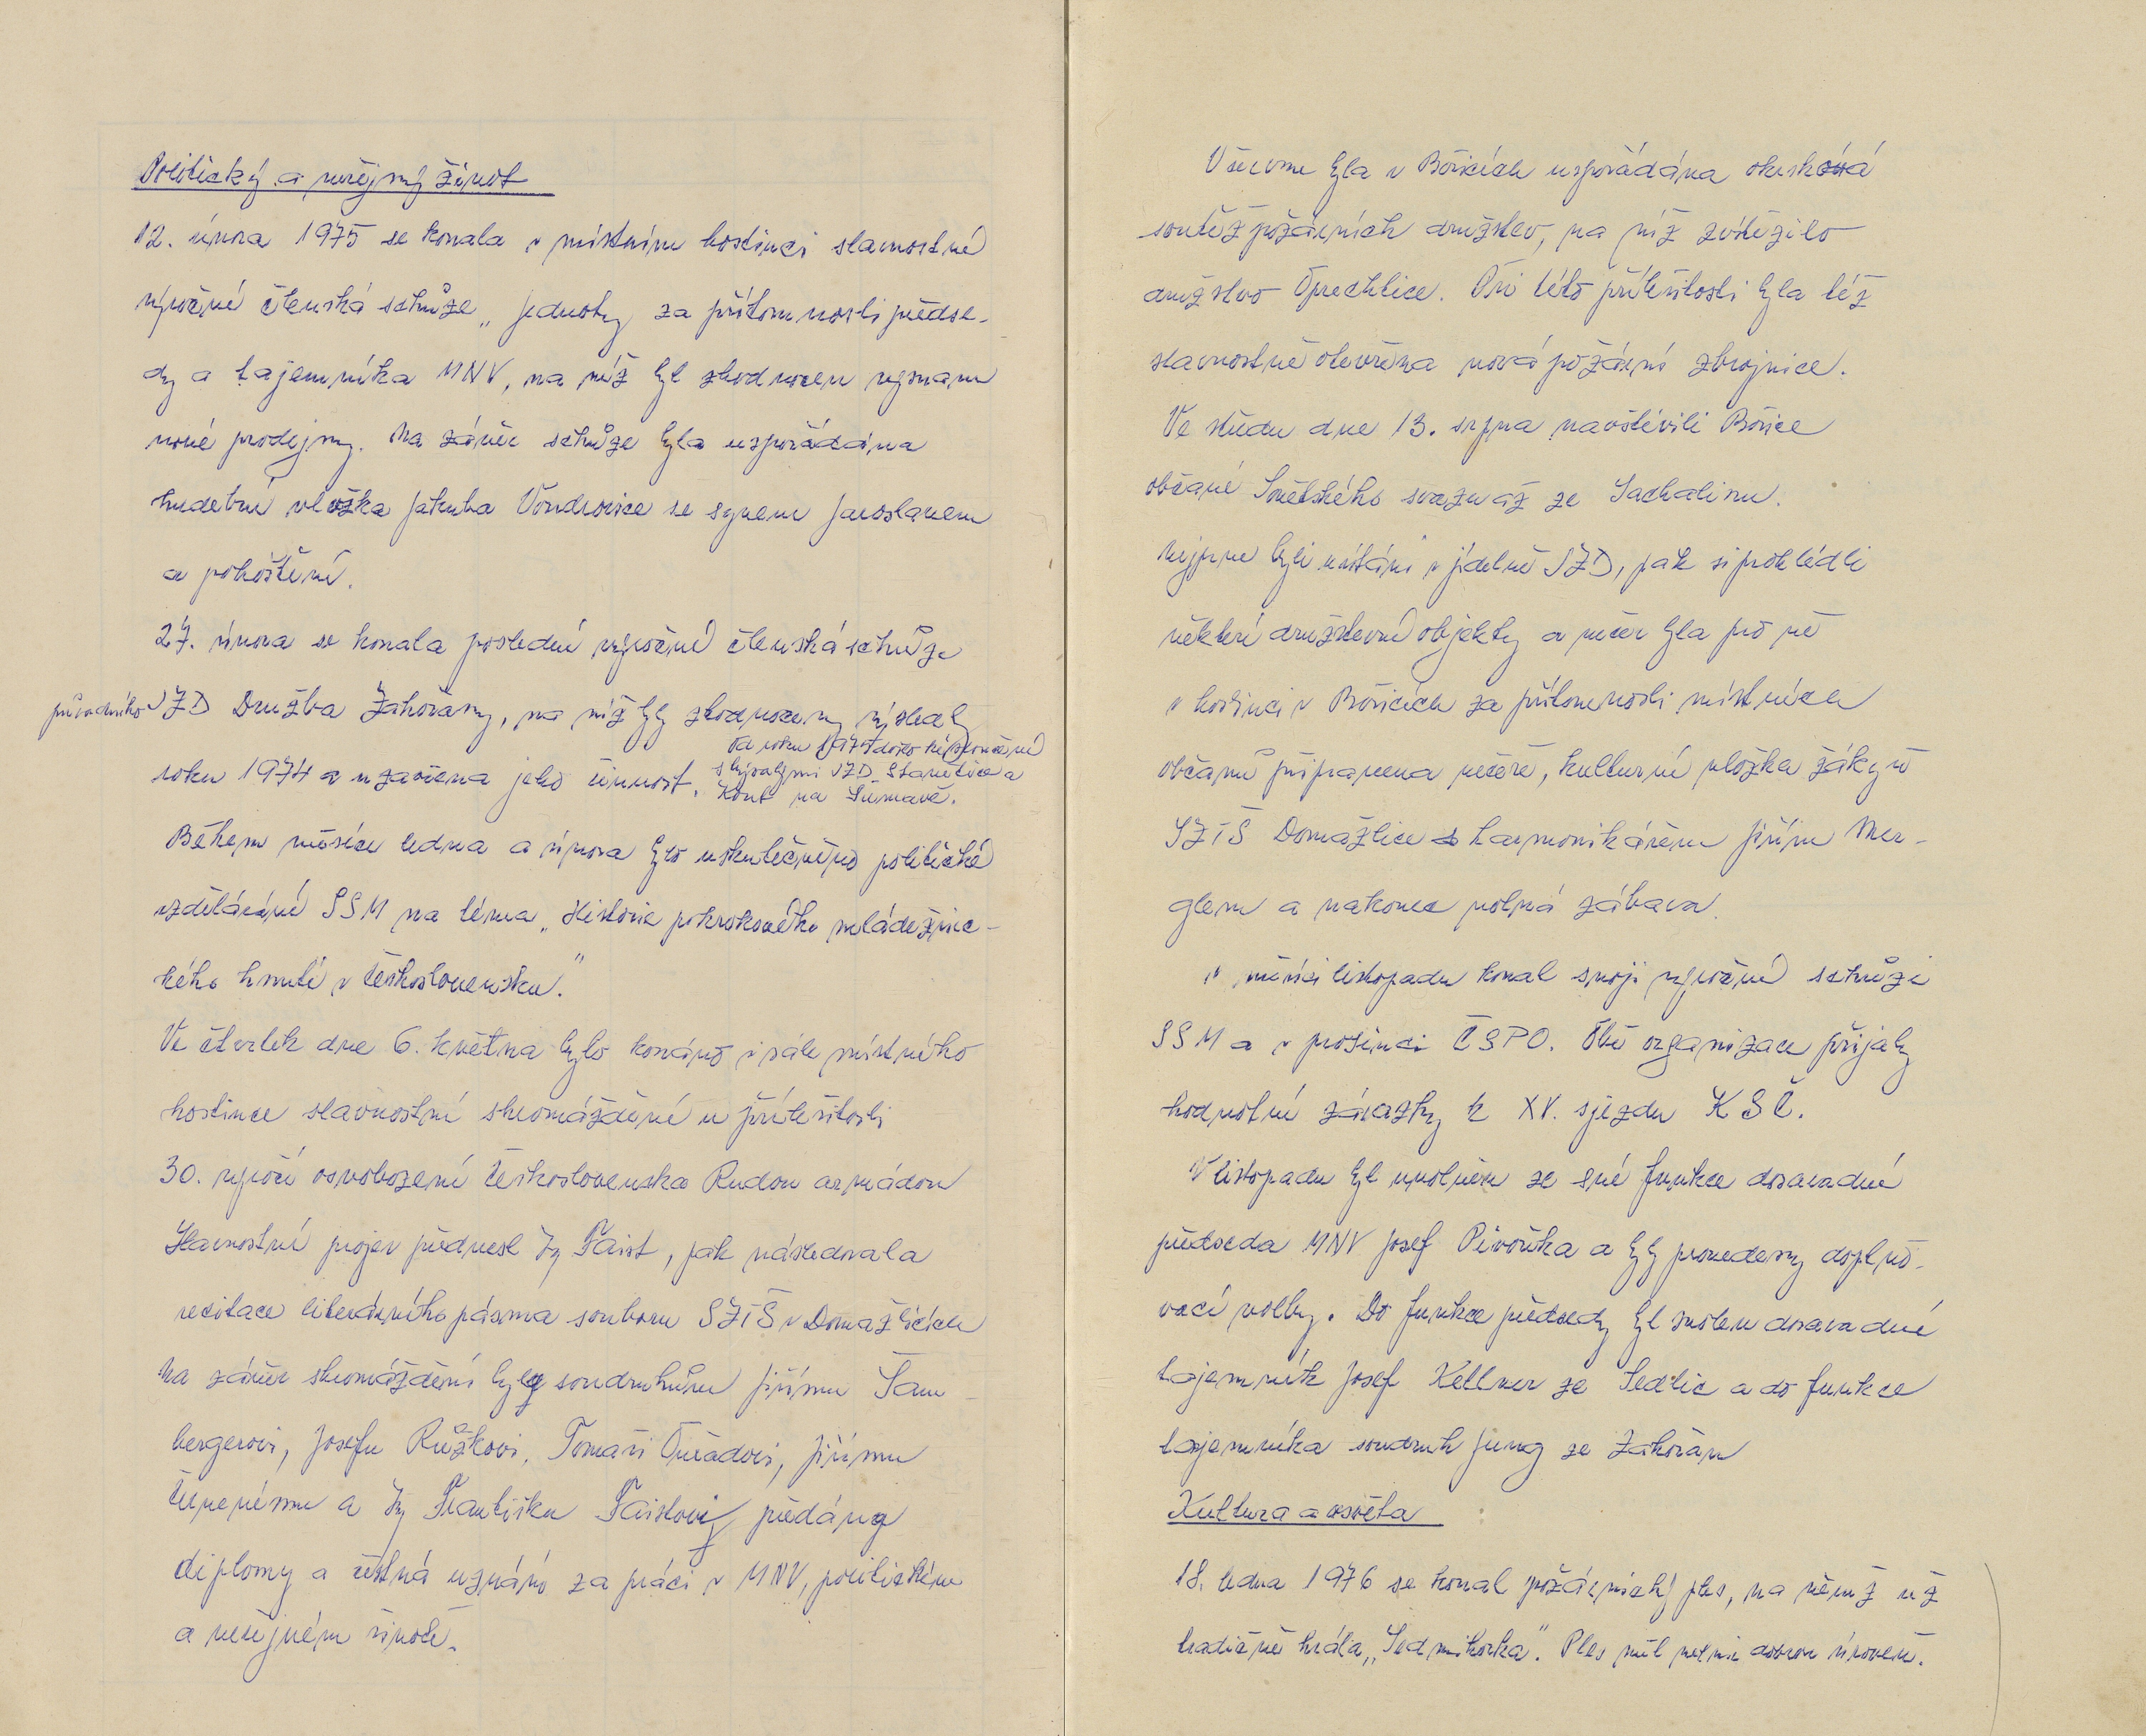 Politický a veřejný život
12. února 1975 se konala v místním hostinci slavnostní
výroční členská schůze „Jednoty za přítomnosti předse-
dy a tajemníka MNV, na níž byl zhodnocen význam
nové prodejny. Na závěr schůze byla uspořádána
hudební vložka Jakuba Vondrovice se synem Jaroslavem
a pohoštění.
27. února se konala poslední výroční členská schůze
původního JZD Družba Zahořany, na níž byly zhodnoceny výsledky
roku 1974 a uzavřena jeho činnost.
Od roku 1975 došlo ke sloučení
s bývalými JZD Stanětice a
Kout na Šumavě.
Během měsíce ledna a února bylo uskutečněno politické
vzdělávání SSM na téma „Historie pokrokového mládežnic-
kého hnutí v Československu."
Ve čtvrtek dne 6. května bylo konáno v sále místného
hostince slavnostní shromáždění u příležitosti
30. výročí osvobození Československa Rudou armádou
Slavnostní projev přednesl Faist, pak následovala
recitace literárního pásma souboru SZTŠ v Domažlicích
Na závěr shromáždění byly soudruhům Jiřímu Šam-
bergerovi, Josefu Růžkovi, Tomáši Jiřímu
a Františku Faistovi předána
diplomy a čestná uznání za práci v MNV, politickém
a veřejném životě.
V červnu byla v Bořicích uspořádána okrsková
soutěž požárních družstev, na níž zvítězilo
družstvo Oprechtice. Při této příležitosti byla též
slavnostně otevřena nová požární zbrojnice.
Ve středu dne 13. srpna navštívili Bořice
občané Sovětského svazu až ze Sachalinu.
Nejprve byli uvítáni v jídelně JZD, pak si prohlédli
některé družstevní objekty a večer byla pro ně
v hostinci v Bořicích za přítomnosti místních
občanů připravena večeře, kulturní vložka žákyň
SZTŠ Domažlice s harmonikářem Jiřím Mer-
glem a nakonec volná zábava.
V měsíci listopadu konal svoji výroční schůzi
SSM a v prosinci ČSPO. Obě organizace přijaly
hodnotné závazky k XV. sjezdu KSČ.
V listopadu byl uvolněn ze své funkce dosavadní
předseda MNV Josef Pivoňka a byly provedeny doplňo-
vací volby. Do funkce předsedy byl zvolen dosavadní
tajemník Josef Kellner ze Sedlic a do funkce
tajemníka soudruh Jung ze Zahořan
Kultura a osvěta
18. ledna 1976 se konal požárnický ples, na němž už
tradičně hrála „Sedmihorka". Ples měl velmi dobrou úroveň.